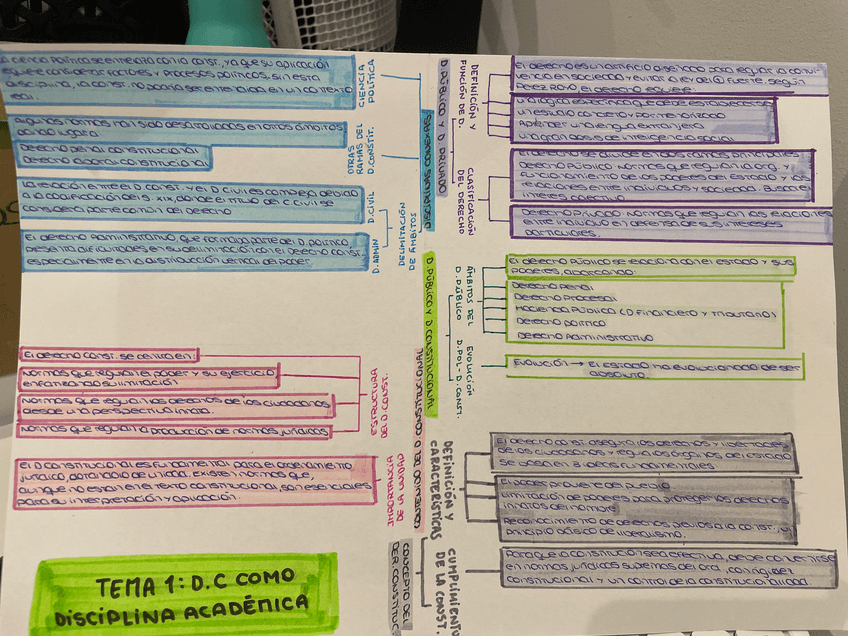 TEMA 1: D.C COMO
DISCIPLINA ACADÉMICA
D. PÚBLICO Y D. PRIVADO
DEFINICIÓN Y
FUNCIÓN DE D.
El derecho es un artificio diseñado para regular la convi-
vencia en sociedad y evitar la ley del más fuerte, según
Pérez Royo el derecho requiere:
una lógica específica que debe establecerse
un estudio concreto y pormenorizado
Aprender una lengua extranjera
un grado más de inteligencia social
CLASIFICACIÓN
DEL DERECHO
El derecho se divide en dos ramas principales
Derecho Público: normas que regulan la org. y
funcionamiento de los poderes del estado y las
relaciones entre individuos y sociedad. Busca el
interés colectivo
Derecho Privado: normas que regulan las relaciones
entre individuos en defensa de sus intereses
particulares.
D. PÚBLICO Y D CONSTITUCIONAL
ÁMBITOS DEL
D. PÚBLICO
El derecho público se relaciona con el estado y sus
poderes, abarcando:
Derecho Penal
Derecho Procesal
Hacienda Pública (D Financiero y Tributario)
Derecho político
Derecho Administrativo
EVOLUCIÓN
D. POL - D. CONST.
Evolución → El estado ha evolucionado de ser
absoluto.
CONCEPTO DEL
DER. CONSTITUC
DEFINICIÓN Y
CARACTERÍSTICAS
El derecho const. asegura los derechos y libertades
de los ciudadanos y regula los órganos del estado
se basa en 3 ideas fundamentales
El poder proviene del pueblo
Limitación de poderes para proteger los derechos
innatos del hombre
Reconocimiento de derechos previos a la const., un
principio básico de liberalismo.
CUMPLIMIENTO
DE LA CONST.
Para que la constitución sea efectiva, debe convertirse
en normas jurídicas supremas del ord., con rigidez
constitucional y un control de la constitucionalidad
DISCIPLINAS CONEXAS
CIENCIA
POLÍTICA
La ciencia política se entrelaza con la const., ya que su aplicación
requiere considerar factores y procesos políticos, sin esta
disciplina, la const. no podría ser entendida en un contexto
real.
OTRAS
RAMAS DEL
D. CONSTIT.
Algunas normas han sido desarrolladas en otros ámbitos
dando lugar a
Derecho penal constitucional
Derecho electoral constitucional
DELIMITACIÓN
DE ÁMBITOS
D. CIVIL
La relación entre el D const. y el D civil es compleja debido
a la codificación del s. XIX, donde el título del C Civil se
considera parte común del derecho
D. ADMIN
El derecho Administrativo, que formaba parte del D. político,
presenta dificultades en su delimitación con el derecho const.
especialmente en la distribución vertical del poder.
CONTENIDO DEL D. CONSTITUCIONAL
ESTRUCTURA
DEL D. CONST.
El derecho const. se centra en:
Normas que regulan el poder y su ejercicio
enfatizando su limitación
Normas que regulan los derechos de los ciudadanos
desde una perspectiva innata.
Normas que regulan la producción de normas jurídicas
IMPORTANCIA
DE LA UNIDAD
El D constitucional es fundamental para el ordenamiento
jurídico, dotándolo de unidad. Existen normas que,
aunque no están en el texto constitucional, son esenciales
para su interpretación y aplicación.